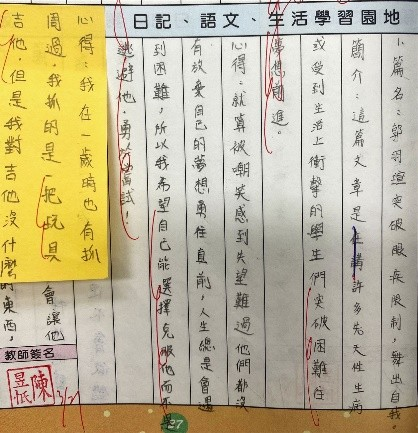 日記、語文、生活學習園地
1.篇名：郭羽瑄突破眼疾限制，舞出自我。
簡介：這篇文章是在講許多先天性生病
或受到生活上衝擊的學生們突破困難往
夢想前進。
心得：就算被嘲笑感到失望難過他們都沒
有放棄自己的夢想勇往直前，人生總是會遇
到困難，所以我希望自己能選擇克服他而不是
逃避他，勇 嘗試！
心得：我在一歲時也有抓
周過，我抓的是一把玩具
吉他，但是我對吉他沒什麼
會讓他
的東西，
教師簽名
陳
3/27
27